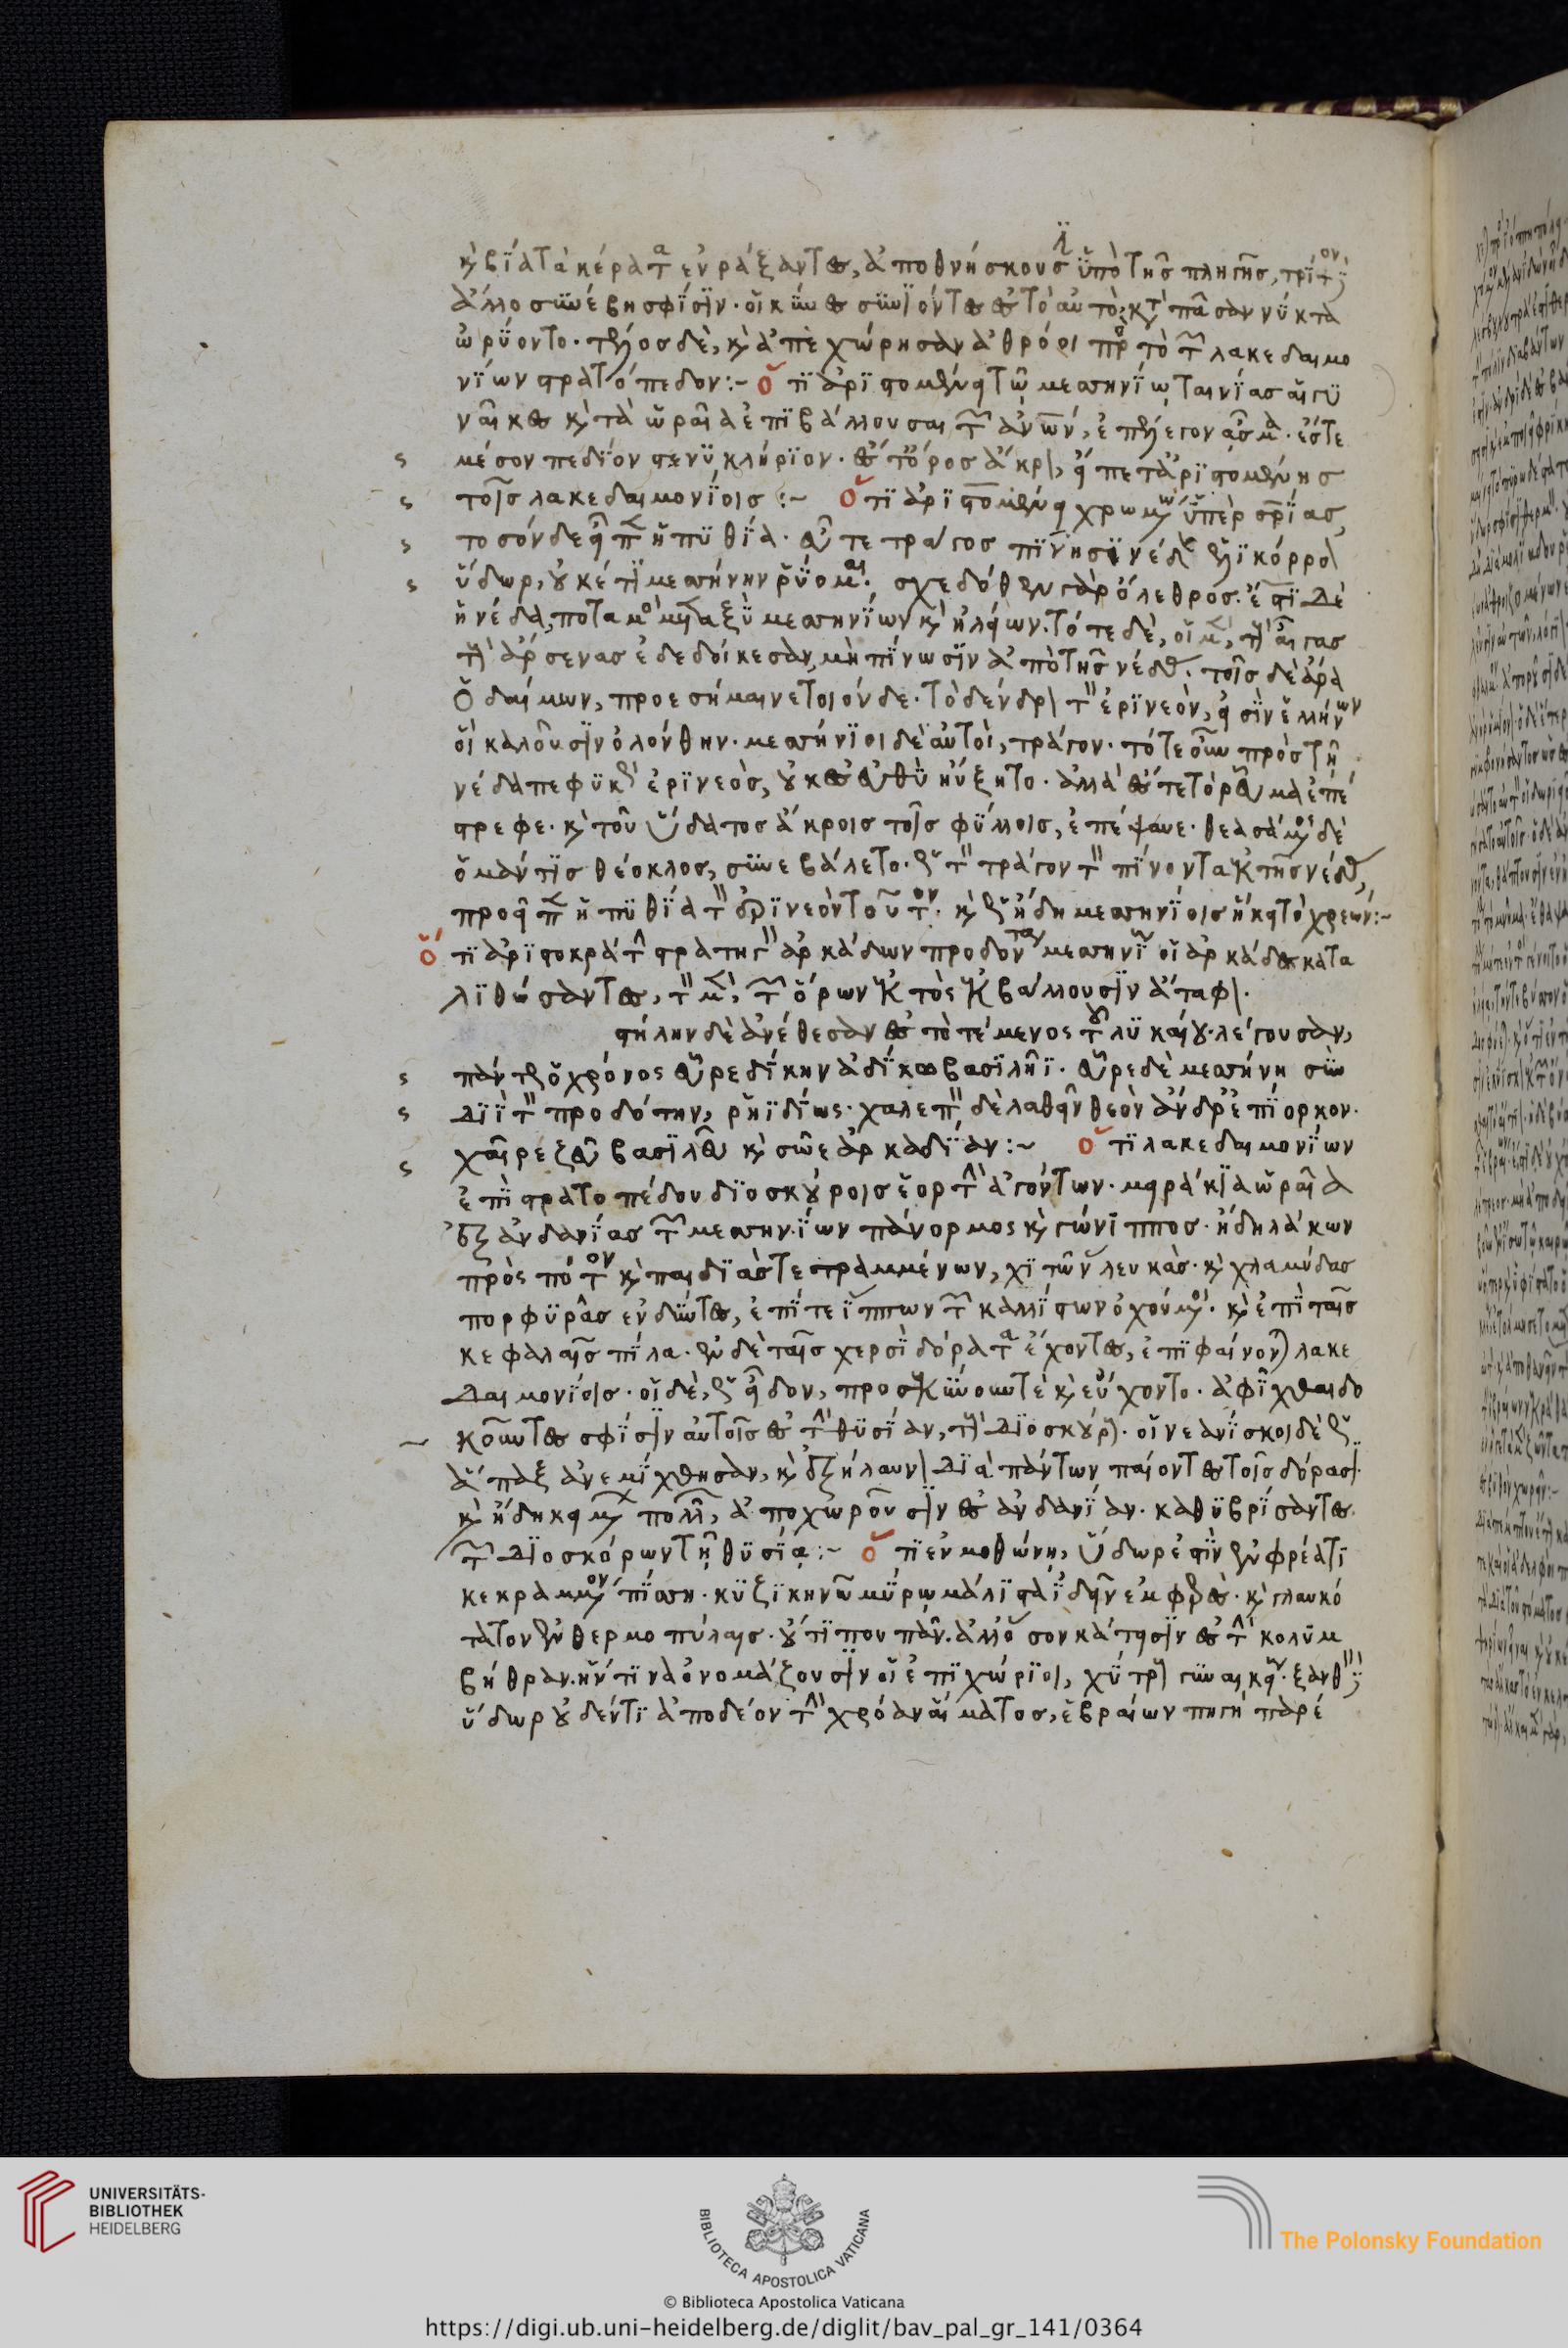 καὶ βίᾳ τὰ κέρατα ἐνράξαντες, ἀποθνήσκουσιν ὑπὸ τῆς πληγῆς, τρίτον
ἄλλο συνέβη σφίσιν. οἱ κύνες συνιόντες ἐς τὸ αὐτὸ, κατὰ πᾶσαν νύκτα
ὠρύοντο. τέλος δὲ, καὶ ἀπεχώρησαν ἀθρόοι πρὸς τὸ τῶν λακεδαιμο
νίων στρατόπεδον:~ ὅτι ἀριστομένει τῷ μεσσηνίῳ ταινίας αἱ γυ
ναῖκες καὶ τὰ ὡραῖα ἐπιβάλλουσαι τῶν ἀνθῶν, ἐπέλεγον ᾆσμα. ἔστε
μέσον πεδίον στενυκλήριον. ἔς τ' ὄρος ἄκρον, εἵπετ' ἀριστομένης
τοῖς λακεδαιμονίοις:~ ὅτι ἀριστομένει χρωμένῳ ὑπὲρ σωτηρίας,
τοσόνδε εἶπεν ἡ πυθία. εὖτε τράγος πίνῃσι νέδης ἑλικόρροον
ὕδωρ, οὐκέτι μεσσήνην ῥύομαι. σχεδόθεν γὰρ ὄλεθρος. ἔστι δὲ
ἡ νέδα, ποταμὸς μεταξὺ μεσσηνίων καὶ ἠλείων. τότε δὲ, οἱ μὲν, τοὺς αἶγας
τοὺς ἄρσενας ἐδεδοίκεσαν, μὴ πίνωσιν ἀπὸ τῆς νέδης. τοῖς δὲ ἄρα
ὁ δαίμων, προεσήμαινε τοιόνδε. τὸ δένδρον τὸν ἐρινεὸν, εἰσὶν ἑλλήνων
οἳ καλοῦσιν ὀλόνθην. μεσσήνιοι δὲ αὐτοὶ, τράγον. τότε οὖν πρὸς τῇ
νέδᾳ πεφυκὼς ἐρινεὸς, οὐκ ἐς εὐθὺ ηὔξητο. ἀλλὰ ἔς τε τὸ ῥεῦμα ἐπέ
στρεφε. καὶ τοῦ ὕδατος ἄκροις τοῖς φύλλοις, ἐπέψαυε. θεασάμενος δὲ
ὁ μάντις θέοκλος, συνεβάλετο. ὡς τὸν τράγον τὸν πίνοντα ἐκ τῆς νέδης,
προεῖπεν ἡ πυθία τὸν ἐρινεὸν τοῦτον. καὶ ὡς ἤδη μεσσηνίοις ἥκει τὸ χρεών:~
ὅτι ἀριστοκράτην στρατηγὸν ἀρκάδων προδόντα μεσσηνίους οἱ ἀρκάδες κατα
λιθώσαντες, τὸν μὲν, τῶν ὅρων ἐκτὸς ἐκβάλλουσιν ἄταφον.
στήλην δὲ ἀνέθεσαν ἐς τὸ τέμενος τοῦ λυκαίου. λέγουσαν,
πάντως ὁ χρόνος εὗρε δίκην ἀδίκῳ βασιλῆϊ. εὗρε δὲ μεσσήνη σὺν
διῒ τὸν προδότην, ῥηϊδίως. χαλεπὸν δὲ λαθεῖν θεὸν ἄνδρ' ἐπίορκον.
χαῖρε ζεῦ βασιλεῦ καὶ σῶε ἀρκαδίαν:~ ὅτι λακεδαιμονίων
ἐπὶ στρατοπέδου διοσκούροις ἑορτὴν ἀγόντων. μειράκια ὡραῖα
ἐξ ἀνδανίας τῶν μεσσηνίων πάνορμος καὶ γώνιππος. ἤδη λάκων
πρὸς πότον καὶ παιδιὰς τετραμμένων, χιτῶνας λευκὰς. καὶ χλαμύδας
πορφυρᾶς ἐνδύντες, ἐπί τε ἵππων τῶν καλλίστων ὀχούμενοι. καὶ ἐπὶ ταῖς
κεφαλαῖς πίλα. ἐν δὲ ταῖς χερσὶ δόρατα ἔχοντες, ἐπιφαίνονται λακε
δαιμονίοις. οἱ δὲ, ὡς εἶδον, προσεκύνουν τὲ καὶ εὔχοντο. ἀφῖχθαι δο
κοῦντες σφίσιν αὐτοῖς ἐς τὴν θυσίαν, τοὺς διοσκούρους. οἱ νεανίσκοι δὲ ὡς
ἅπαξ ἀνεμίχθησαν, καὶ διεξήλαυνον διὰ πάντων παίοντες τοῖς δόρασι.
καὶ ἤδη κειμένων πολλῶν, ἀποχωροῦσιν ἐς ἀνδανίαν. καθυβρίσαντες
τῶν διοσκόρων τῇ θυσίᾳ:~ ὅτι ἐν μοθώνῃ, ὕδωρ ἐστὶν ἐν φρέατι
κεκραμμένον πίσσῃ. κυζικηνῷ μύρῳ μάλιστα ἰδεῖν ἐμφερές. καὶ γλαυκό
τατον ἐν θερμοπύλαις. οὔτι που πᾶν. ἀλλ' ὅσον κάτεισιν ἐς τὴν κολύμ
βήθραν. ἥντινα ὀνομάζουσιν οἱ ἐπιχώριοι, χύτρους γυναικείους. ξανθὸν
ὕδωρ οὐδέν τι ἀποδέον τὴν χρόαν αἵματος, ἑβραίων πηγὴ παρέ
UNIVERSITÄTS-
BIBLIOTHEK
HEIDELBERG
BIBLIOTECA APOSTOLICA VATICANA
The Polonsky Foundation
© Biblioteca Apostolica Vaticana
https://digi.ub.uni-heidelberg.de/diglit/bav_pal_gr_141/0364